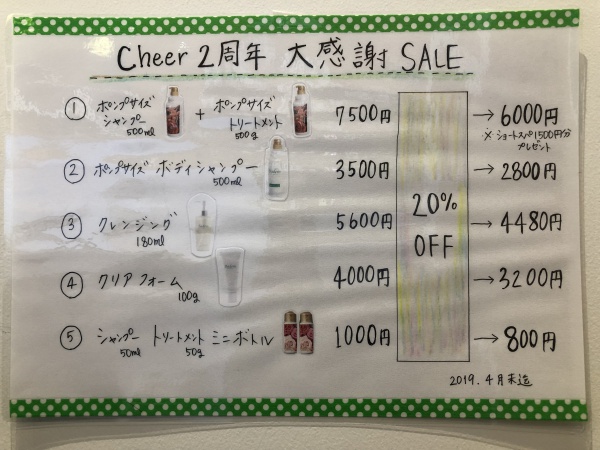 Cheer 2周年 大感謝 SALE
① ポンプサイズ シャンプー 500ml + ポンプサイズ トリートメント 500g 7500円 → 6000円
※ ショートスパ1500円分 プレゼント
② ポンプサイズ ボディシャンプー 500ml 3500円 → 2800円
③ クレンジング 180ml 5600円 → 4480円
20% OFF
④ クリアフォーム 100g 4000円 → 3200円
⑤ シャンプー 50ml トリートメント 50g ミニボトル 1000円 → 800円
2019.4月末迄